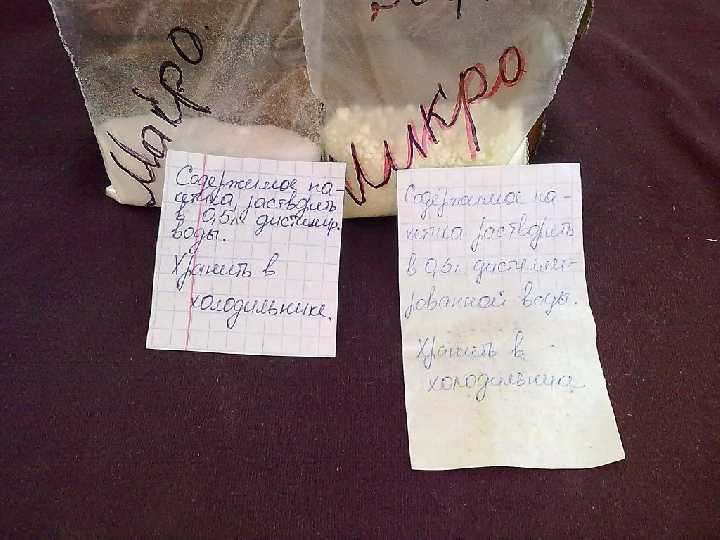 Макро.
Микро
Содержимое па-
кетика растворить
в 0,5л дистилир.
воды.
Хранить в
холодильнике.
Содержимое па-
кетика растворить
в 0,5л дистилли-
рованной воды.
Хранить в
холодильнике